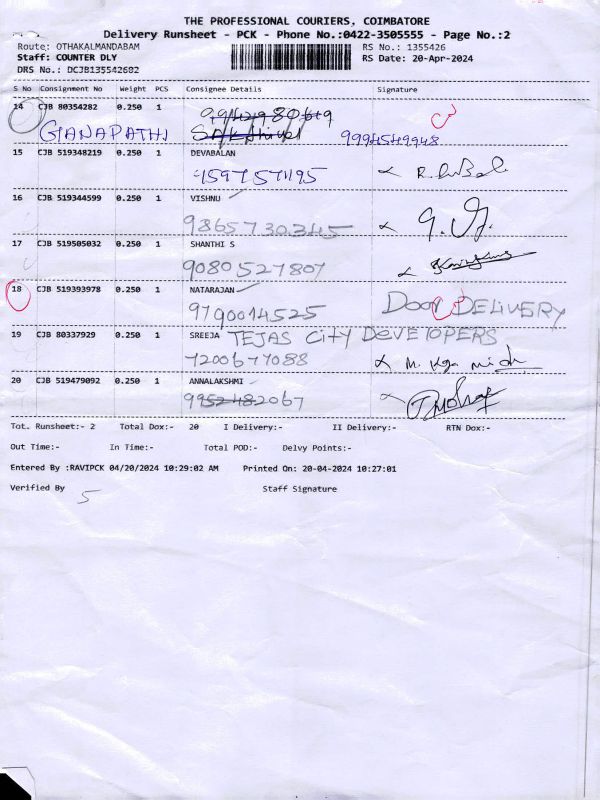 THE PROFESSIONAL COURIERS, COIMBATORE
Delivery Runsheet - PCK - Phone No.:0422-3505555 - Page No.:2
Route: OTHAKALMANDABAM RS No.: 1355426
Staff: COUNTER DLY RS Date: 20-Apr-2024
DRS No.: DCJB135542682
S No Consignment No Weight PCS Consignee Details Signature
14 CJB 80354282 0.250 1
GANAPATHI 9994549948
15 CJB 519348219 0.250 1 DEVABALAN
16 CJB 519344599 0.250 1 VISHNU
9865730345
17 CJB 519505032 0.250 1 SHANTHI S
9080527807
18 CJB 519393978 0.250 1 NATARAJAN
9790014525 DOOR DELIVERY
19 CJB 80337929 0.250 1 SREEJA TEJAS CITY DEVELOPERS
7200677088
20 CJB 519479092 0.250 1 ANNALAKSHMI
9952482067
Tot. Runsheet:- 2 Total Dox:- 20 I Delivery:- II Delivery:- RTN Dox:-
Out Time:- In Time:- Total POD:- Delvy Points:-
Entered By :RAVIPCK 04/20/2024 10:29:02 AM Printed On: 20-04-2024 10:27:01
Verified By 5 Staff Signature